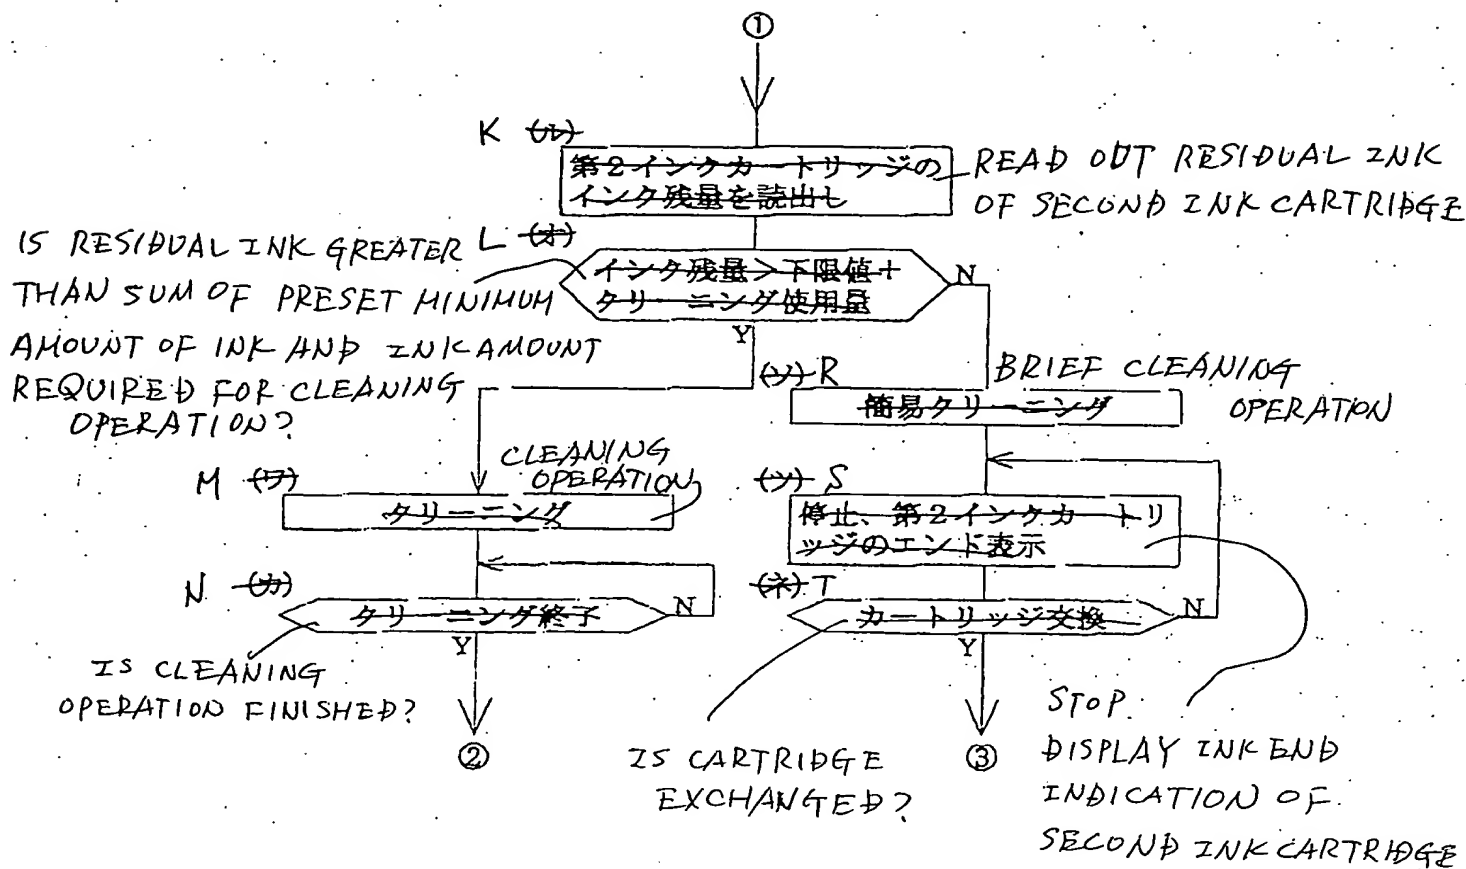 ①
K (ル)
第2インクカートリッジの
インク残量を読出し
READ OUT RESIDUAL INK
OF SECOND INK CARTRIDGE
L (オ)
IS RESIDUAL INK GREATER
THAN SUM OF PRESET MINIMUM
AMOUNT OF INK AND INK AMOUNT
REQUIRED FOR CLEANING
OPERATION?
インク残量>下限値+
クリーニング使用量
N
Y
(ソ) R
BRIEF CLEANING
OPERATION
簡易クリーニング
M (ワ)
CLEANING
OPERATION
クリーニング
(ツ) S
停止、第2インクカートリ
ッジのエンド表示
N (カ)
クリーニング終了
N
Y
(ネ) T
カートリッジ交換
N
Y
IS CLEANING
OPERATION FINISHED?
②
IS CARTRIDGE
EXCHANGED?
③
STOP.
DISPLAY INK END
INDICATION OF
SECOND INK CARTRIDGE